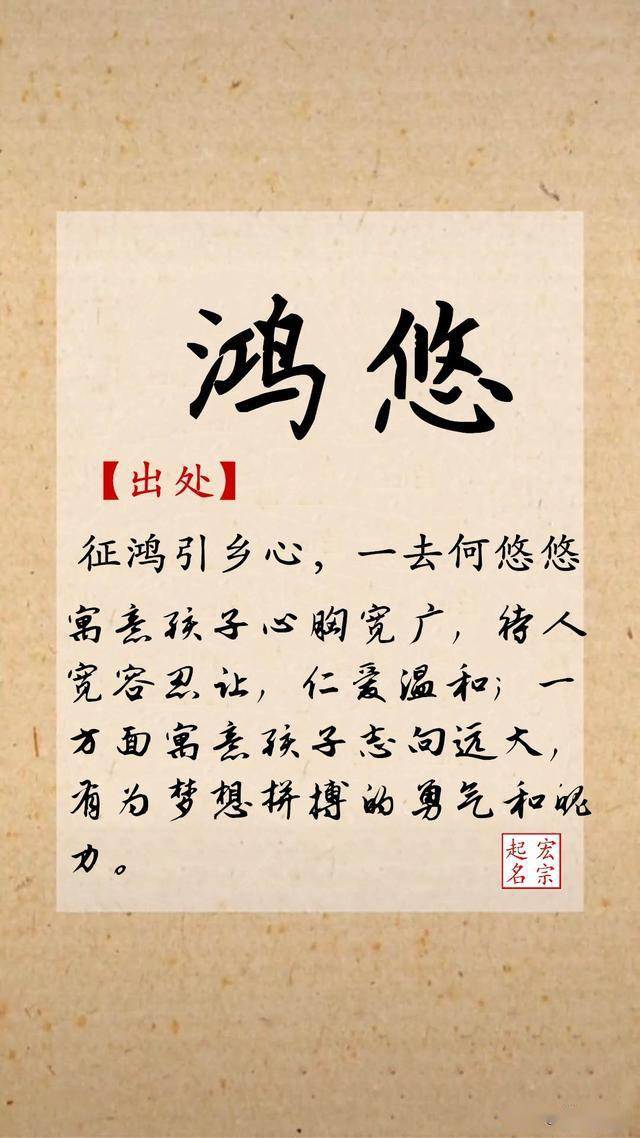 鸿悠
【出处】
征鸿引乡心，一去何悠悠
寓意孩子心胸宽广，待人
宽容忍让，仁爱温和；一
方面寓意孩子志向远大，
有为梦想拼搏的勇气和魄
力。
宏宗
起名